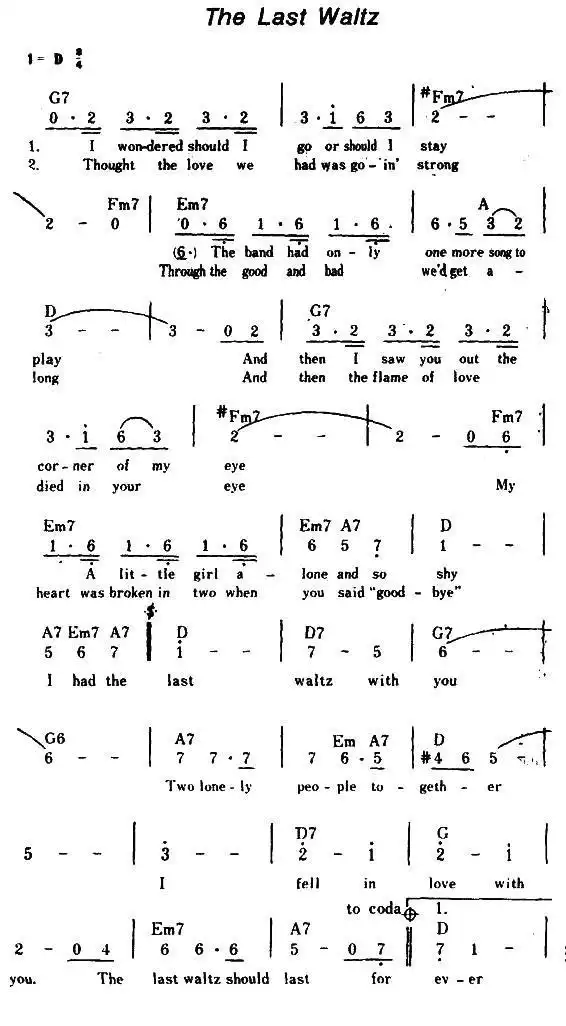 The Last Waltz
1= D 3/4
G7 #Fm7
0 · 2 3 · 2 3 · 2 | 3 · i 6 3 | 2 - -
1. I won-dered should I go or should I stay
2. Thought the love we had was go-in' strong
Fm7 Em7 A
2 - 0 | 0 · 6 1 · 6 1 · 6 | 6 · 5 3 2
(6·) The band had on - ly one more song to
Through the good and bad we'd get a -
D G7
3 - - | 3 - 0 2 | 3 · 2 3 · 2 3 · 2
play And then I saw you out the
long And then the flame of love
#Fm7 Fm7
3 · i 6 3 | 2 - - | 2 - 0 6 |
cor - ner of my eye
died in your eye My
Em7 Em7 A7 D
1 · 6 1 · 6 1 · 6 | 6 5 7 | 1 - - |
A lit - tle girl a - lone and so shy
heart was broken in two when you said "good - bye"
A7 Em7 A7 D D7 G7
5 6 7 | i - - | 7 - 5 | 6 - - |
I had the last waltz with you
G6 A7 Em A7 D
6 - - | 7 7 · 7 | 7 6 · 5 | #4 6 5
Two lone - ly peo - ple to - geth - er
D7 G
5 - - | 3 - - | 2 - i | 2 - i |
I fell in love with
to coda 1.
Em7 A7 D
2 - 0 4 | 6 6 · 6 | 5 - 0 7 || 7 1 -
you. The last waltz should last for ev - er